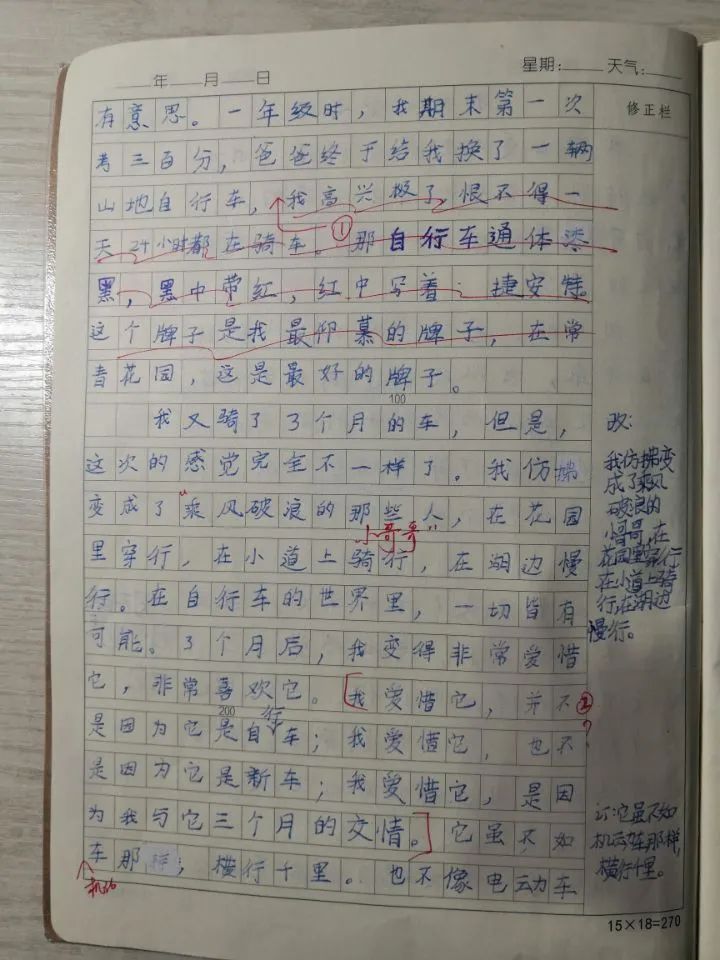 年 月 日 星期: 天气:
修正栏
有意思。一年级时，我期末第一次
考三百分，爸爸终于给我换了一辆
山地自行车，我高兴极了，恨不得一
天24小时都在骑车。那自行车通体漆
①
黑，黑中带红，红中写着：捷安特
这个牌子是我最仰慕的牌子，在常
青花园，这是最好的牌子。
100
我又骑了3个月的车，但是，
这次的感觉完全不一样了。我仿拂
变成了"乘风破浪的那些人"，在花园
小哥哥
里穿行，在小道上骑行，在湖边慢
行。在自行车的世界里，一切皆有
可能。3个月后，我变得非常爱惜
它，非常喜欢它。[我爱惜它，并不
②
200
行
是因为它是自车；我爱惜它，也不
是因为它是新车；我爱惜它，是因
为我与它三个月的交情。]它虽不如
车那样，横行千里。也不像电动车
机动
改：
我仿拂变
成了乘风
破浪的
小哥哥，在
花园里穿行
在小道上骑
行，在湖边
慢行。
订：它虽不如
机动车那样，
横行千里。
15×18=270